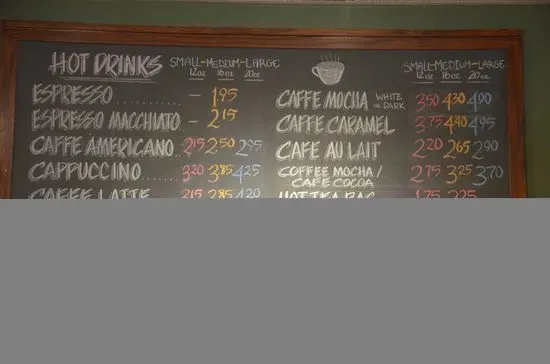 HOT DRINKS SMALL-MEDIUM-LARGE
12oz 16oz 20oz
ESPRESSO ......... - 1.95
ESPRESSO MACCHIATO - 2.15
CAFFE AMERICANO 2.15 2.50 2.95
CAPPUCCINO ...... 3.20 3.85 4.25
CAFFE LATTE 3.15 3.85 4.20
SMALL-MEDIUM-LARGE
12oz 16oz 20oz
CAFFE MOCHA WHITE or DARK 3.50 4.30 4.90
CAFFE CARAMEL 3.75 4.40 4.95
CAFE AU LAIT 2.20 2.65 2.90
COFFEE MOCHA /
CAFE COCOA ......... 2.75 3.25 3.70
HOT TEA BAG 1.75 2.25